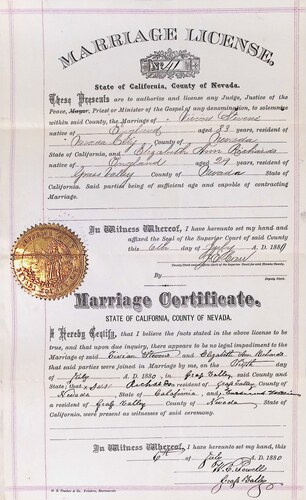 MARRIAGE LICENSE,
No. 41
State of California, County of Nevada.
These Presents are to authorize and license any Judge, Justice of the
Peace, Mayor, Priest or Minister of the Gospel of any denomination, to solemnize
within said County, the Marriage of Vivian Stevens
native of England aged 33 years, resident of
Nevada City County of Nevada
State of California, and Elizabeth Ann Richards
native of England aged 29 years, resident of
Grass Valley County of Nevada State of
California. Said parties being of sufficient age and capable of contracting
Marriage.
In Witness Whereof, I have hereunto set my hand and
affixed the Seal of the Superior Court of said County
this 6th day of July A. D. 1880
By
Deputy Clerk.
Marriage Certificate.
STATE OF CALIFORNIA, COUNTY OF NEVADA.
I Hereby Certify, that I believe the facts stated in the above license to be
true, and that upon due inquiry, there appears to be no legal impediment to the
Marriage of said Vivian Stevens and Elizabeth Ann Richards
that said parties were joined in Marriage by me, on the Sixth day of
July A. D. 1880 in Grass Valley said County and
State; that a resident of Grass Valley County of
Nevada State of California, and
a resident of Grass Valley County of Nevada State of
California, were present as witnesses of said ceremony.
In Witness Whereof, I have hereunto set my hand, this
6th July A. D. 1880
W. C. Powell
Grass Valley